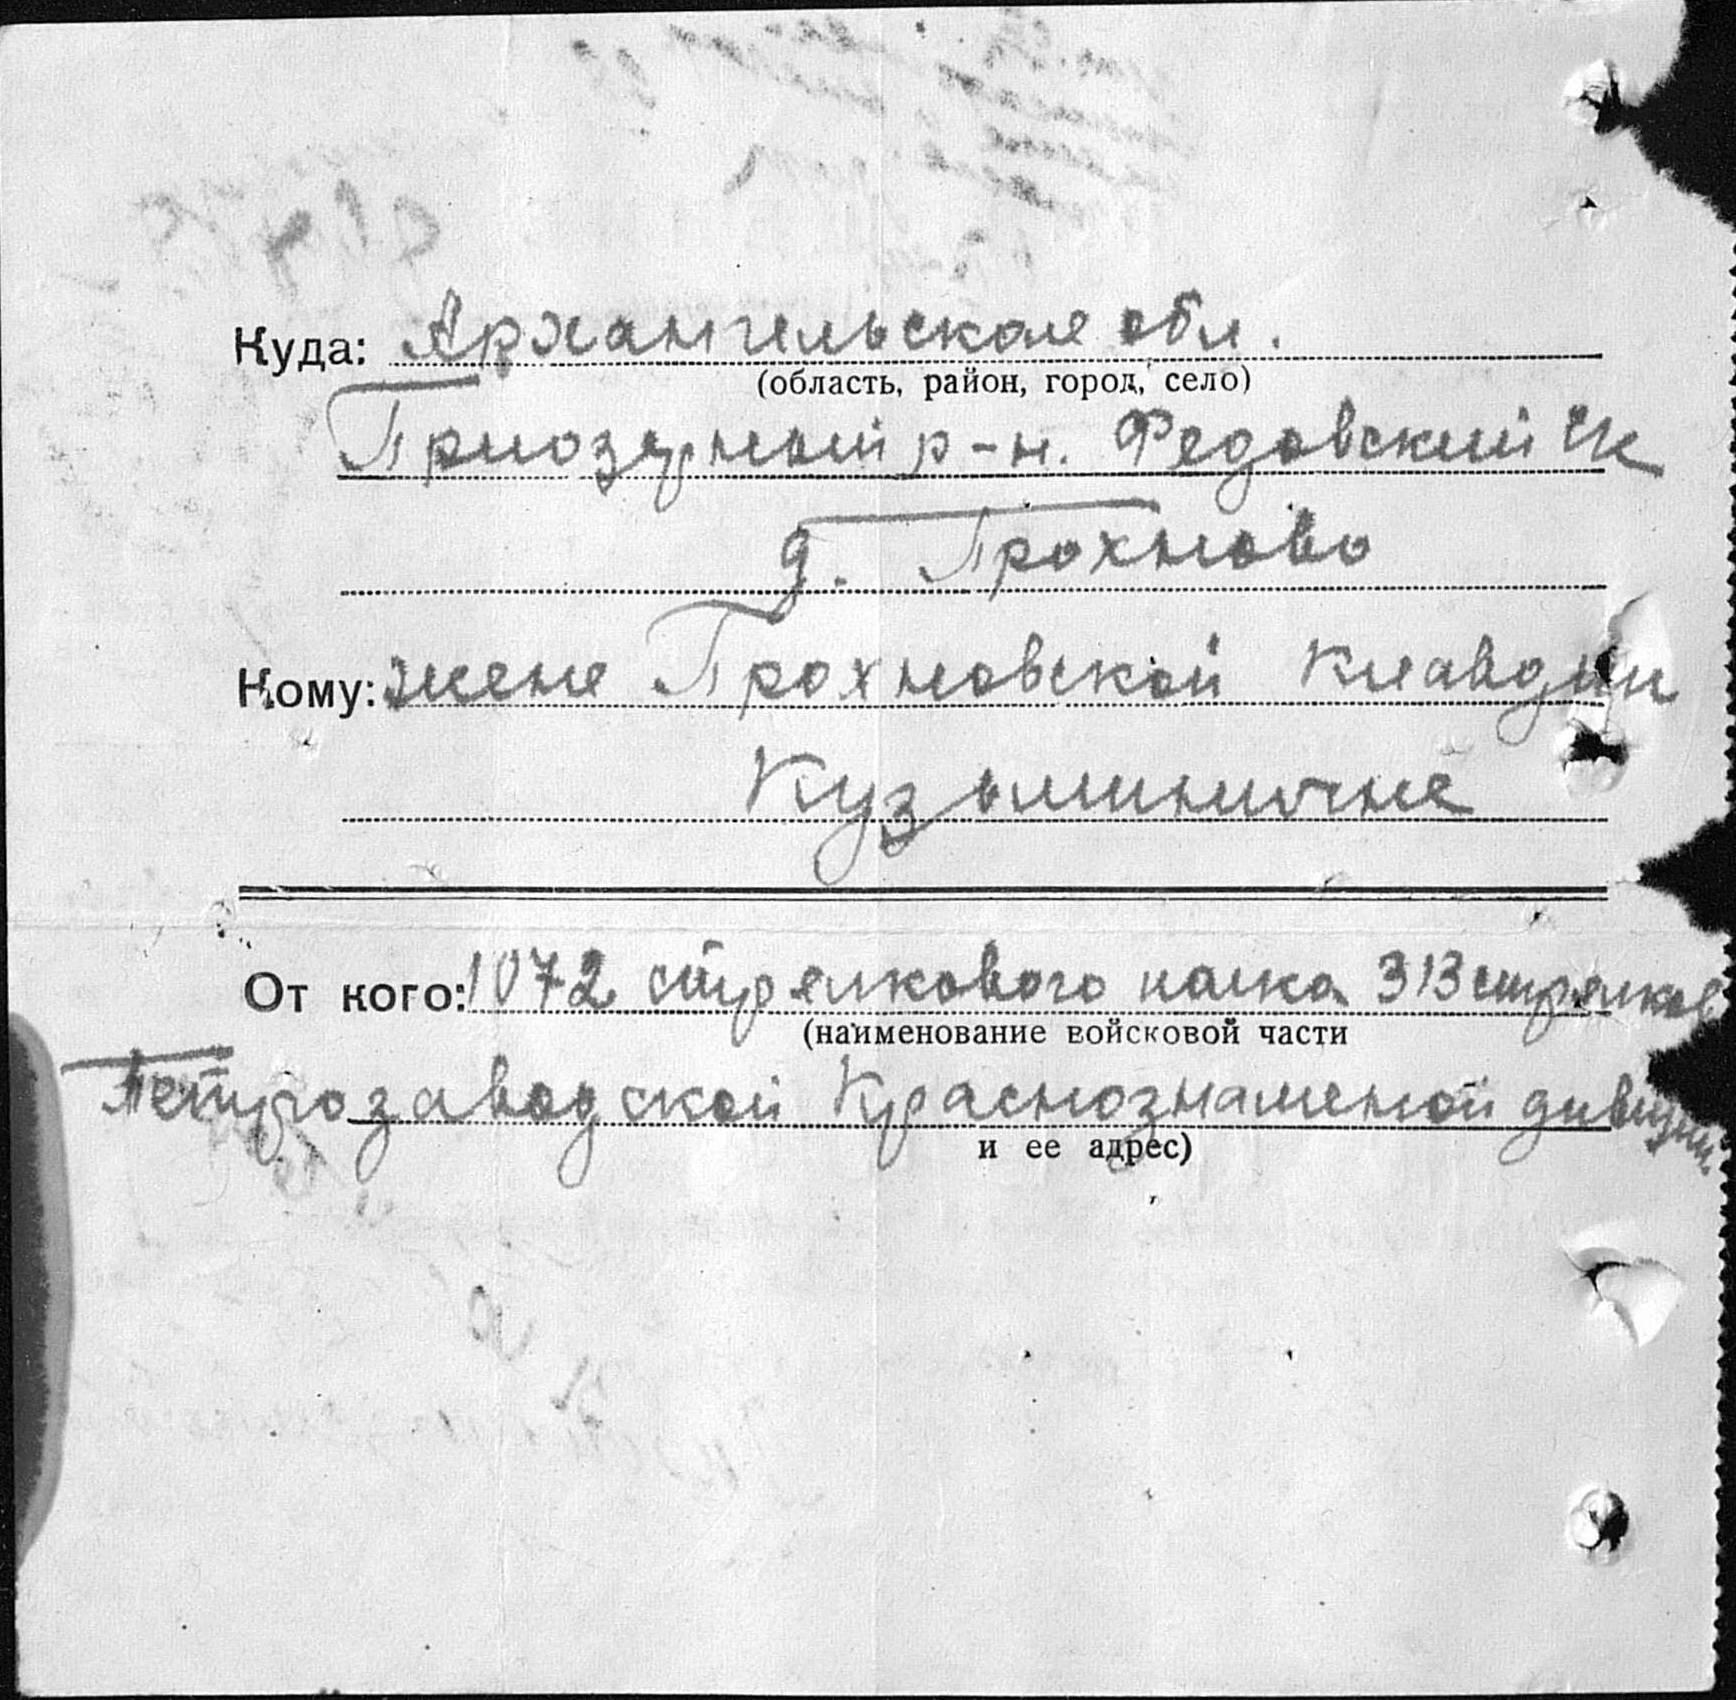 Куда: Архангельская обл.
(область, район, город, село)
Приозерный р-н. Федовский с/с
д. Прохново
Кому: жене Прохновской Клавдии
Кузьминичне
От кого: 1072 стрелкового полка 313 стрелков
(наименование войсковой части
Петрозаводской Краснознаменой дивизии
и ее адрес)